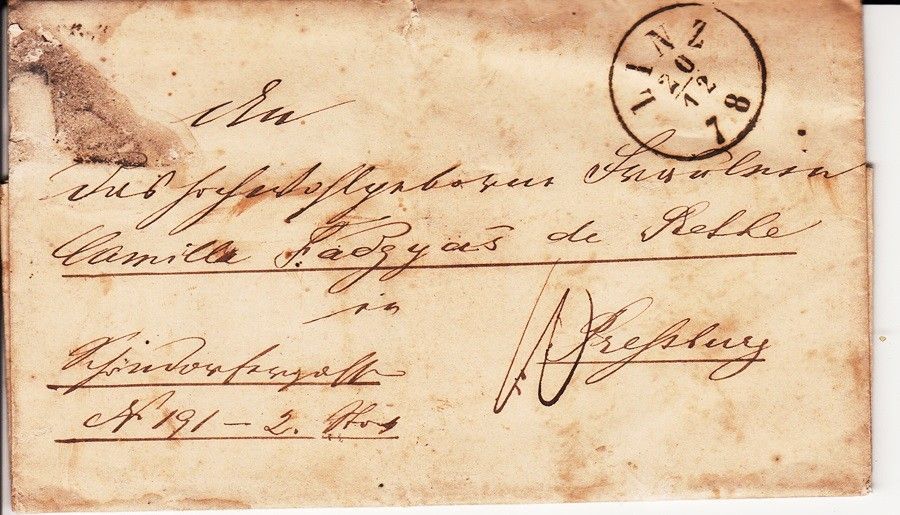 LINZ
20
12
78
An
das hochwohlgeborne Fräulein
Camilla Fadgyas de Rethe
in
10 Preßburg
Schöndorfergasse
N 191 – 2. Stock